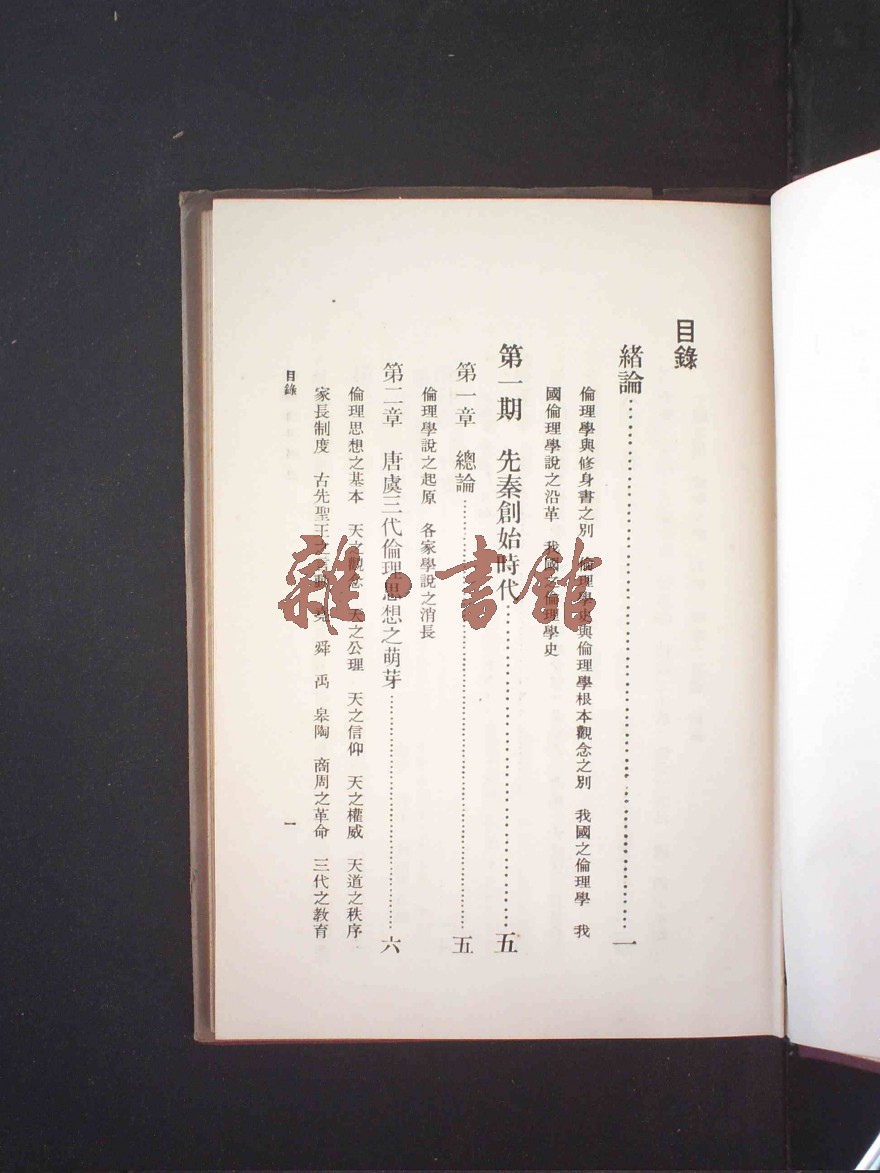 目錄
緒論……一
倫理學與修身書之別　倫理學史與倫理學根本觀念之別　我國之倫理學　我
國倫理學說之沿革　我國之倫理學史
第一期　先秦創始時代……五
第一章　總論……五
倫理學說之起原　各家學說之消長
第二章　唐虞三代倫理思想之萌芽……六
倫理思想之基本　天之觀念　天之公理　天之信仰　天之權威　天道之秩序
家長制度　古先聖王之言動　堯　舜　禹　皋陶　商周之革命　三代之教育
目錄
一
雜·書館